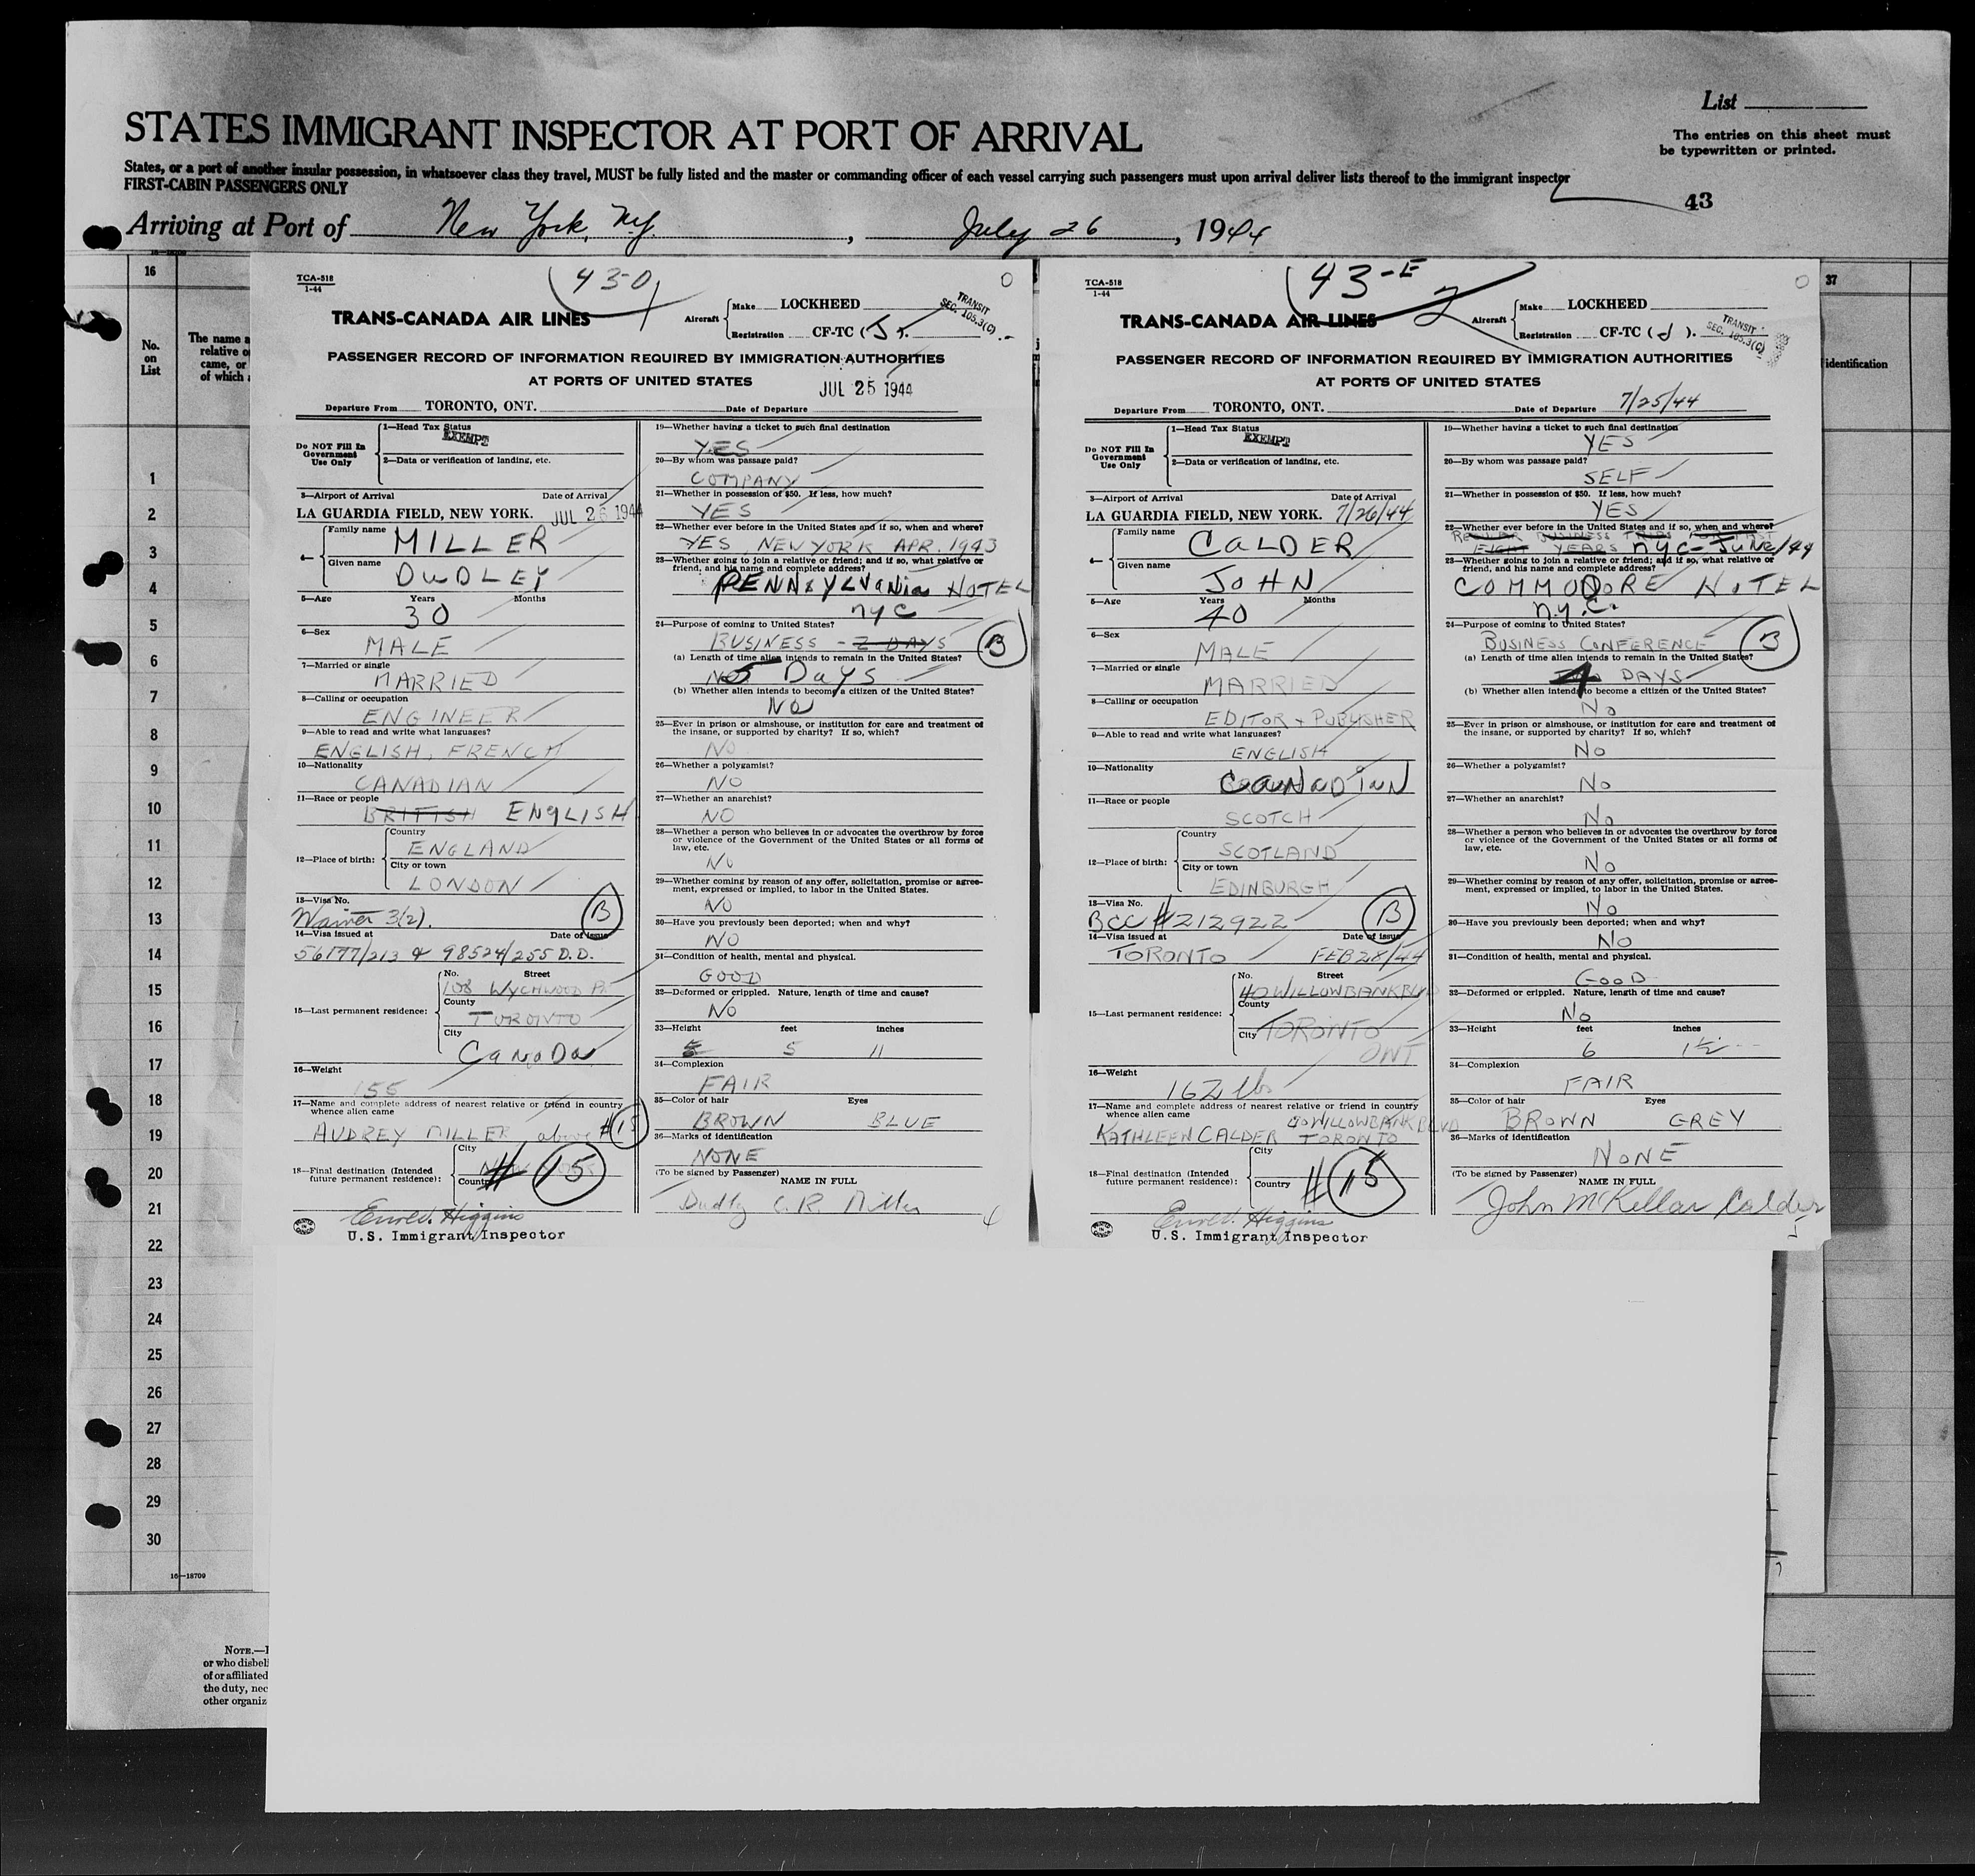 List
STATES IMMIGRANT INSPECTOR AT PORT OF ARRIVAL
The entries on this sheet must
be typewritten or printed.
States, or a port of another insular possession, in whatsoever class they travel, MUST be fully listed and the master or commanding officer of each vessel carrying such passengers must upon arrival deliver lists thereof to the immigrant inspector
FIRST-CABIN PASSENGERS ONLY
43
Arriving at Port of New York, N.Y. , July 26 , 1944
16
No.
on
List
The name a
relative o
came, or
of which
37
identification
1
2
3
4
5
6
7
8
9
10
11
12
13
14
15
16
17
18
19
20
21
22
23
24
25
26
27
28
29
30
16—18709
NOTE.—I
or who disbel
of or affiliated
the duty, nec
other organiz
TCA-518
1-44
43-D
TRANS-CANADA AIR LINES
Aircraft Make LOCKHEED
Registration CF-TC (J).
TRANSIT
SEC. 105.3(C)
PASSENGER RECORD OF INFORMATION REQUIRED BY IMMIGRATION AUTHORITIES
AT PORTS OF UNITED STATES
JUL 25 1944
Departure From TORONTO, ONT. Date of Departure
Do NOT Fill In
Government
Use Only
1—Head Tax Status
EXEMPT
2—Data or verification of landing, etc.
3—Airport of Arrival Date of Arrival
LA GUARDIA FIELD, NEW YORK. JUL 26 1944
4— Family name MILLER
Given name
DUDLEY
5—Age Years Months
30
6—Sex
MALE
7—Married or single
MARRIED
8—Calling or occupation
ENGINEER
9—Able to read and write what languages?
ENGLISH, FRENCH
10—Nationality
CANADIAN
11—Race or people
BRITISH ENGLISH
12—Place of birth: Country
ENGLAND
City or town
LONDON
13—Visa No.
3(2). B
14—Visa issued at Date of issue
56177/213 & 98524/255 D.D.
15—Last permanent residence: No. Street
108 WYCHWOOD PK
County
TORONTO
City
CANADA
16—Weight
155
17—Name and complete address of nearest relative or friend in country
whence alien came
AUDREY MILLER above #15
18—Final destination (Intended
future permanent residence): City
Country
#15
Higgins
U.S. Immigrant Inspector
19—Whether having a ticket to such final destination
YES
20—By whom was passage paid?
COMPANY
21—Whether in possession of $50. If less, how much?
YES
22—Whether ever before in the United States and if so, when and where?
YES, NEW YORK APR. 1943
23—Whether going to join a relative or friend; and if so, what relative or
friend, and his name and complete address?
PENNSYLVANIA HOTEL
NYC
24—Purpose of coming to United States?
BUSINESS - 2 DAYS B
(a) Length of time alien intends to remain in the United States?
5 DAYS
(b) Whether alien intends to become a citizen of the United States?
NO
25—Ever in prison or almshouse, or institution for care and treatment of
the insane, or supported by charity? If so, which?
NO
26—Whether a polygamist?
NO
27—Whether an anarchist?
NO
28—Whether a person who believes in or advocates the overthrow by force
or violence of the Government of the United States or all forms of
law, etc.
NO
29—Whether coming by reason of any offer, solicitation, promise or agree-
ment, expressed or implied, to labor in the United States.
NO
30—Have you previously been deported; when and why?
NO
31—Condition of health, mental and physical.
GOOD
32—Deformed or crippled. Nature, length of time and cause?
NO
33—Height feet inches
5 11
34—Complexion
FAIR
35—Color of hair Eyes
BROWN BLUE
36—Marks of identification
NONE
(To be signed by Passenger)
NAME IN FULL
Dudley C. R. Miller
TCA-518
1-44
43-E
TRANS-CANADA AIR LINES
Aircraft Make LOCKHEED
Registration CF-TC (J).
TRANSIT
SEC. 105.3(C)
PASSENGER RECORD OF INFORMATION REQUIRED BY IMMIGRATION AUTHORITIES
AT PORTS OF UNITED STATES
Departure From TORONTO, ONT. Date of Departure 7/25/44
Do NOT Fill In
Government
Use Only
1—Head Tax Status
EXEMPT
2—Data or verification of landing, etc.
3—Airport of Arrival Date of Arrival
LA GUARDIA FIELD, NEW YORK. 7/26/44
4— Family name
CALDER
Given name
JOHN
5—Age Years Months
40
6—Sex
MALE
7—Married or single
MARRIED
8—Calling or occupation
EDITOR + PUBLISHER
9—Able to read and write what languages?
ENGLISH
10—Nationality
CANADIAN
11—Race or people
SCOTCH
12—Place of birth: Country
SCOTLAND
City or town
EDINBURGH
13—Visa No.
BCC #212922 B
14—Visa issued at Date of issue
TORONTO FEB 28/44
15—Last permanent residence: No. Street
40 WILLOWBANK BLVD
County
City TORONTO
ONT
16—Weight
162 lbs
17—Name and complete address of nearest relative or friend in country
whence alien came
40 WILLOWBANK BLVD
KATHLEEN CALDER TORONTO
18—Final destination (Intended
future permanent residence): City
Country
#15
Higgins
U.S. Immigrant Inspector
19—Whether having a ticket to such final destination
YES
20—By whom was passage paid?
SELF
21—Whether in possession of $50. If less, how much?
YES
22—Whether ever before in the United States and if so, when and where?
REGULAR BUSINESS TRIPS FOR PAST
EIGHT YEARS NYC - JUNE/44
23—Whether going to join a relative or friend; and if so, what relative or
friend, and his name and complete address?
COMMODORE HOTEL
N.Y.C.
24—Purpose of coming to United States?
BUSINESS CONFERENCE B
(a) Length of time alien intends to remain in the United States?
4 DAYS
(b) Whether alien intends to become a citizen of the United States?
NO
25—Ever in prison or almshouse, or institution for care and treatment of
the insane, or supported by charity? If so, which?
NO
26—Whether a polygamist?
NO
27—Whether an anarchist?
NO
28—Whether a person who believes in or advocates the overthrow by force
or violence of the Government of the United States or all forms of
law, etc.
NO
29—Whether coming by reason of any offer, solicitation, promise or agree-
ment, expressed or implied, to labor in the United States.
NO
30—Have you previously been deported; when and why?
NO
31—Condition of health, mental and physical.
GOOD
32—Deformed or crippled. Nature, length of time and cause?
NO
33—Height feet inches
6 1½
34—Complexion
FAIR
35—Color of hair Eyes
BROWN GREY
36—Marks of identification
NONE
(To be signed by Passenger)
NAME IN FULL
John McKellar Calder